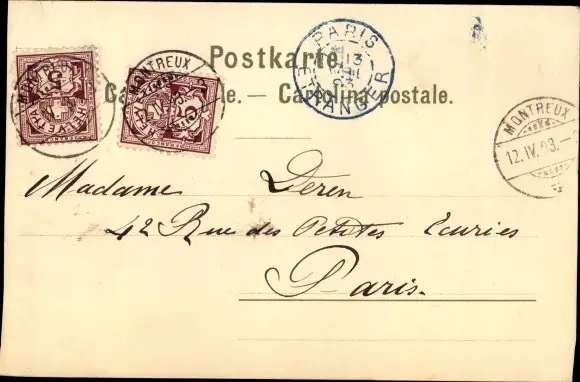 Postkarte.
le. — Cartolina postale.
PARIS
13
ETRANGER
MONTREUX
MONTREUX
MONTREUX
12.IV.98.–
Madame Deren
42 Rue des Petites Ecuries
Paris.